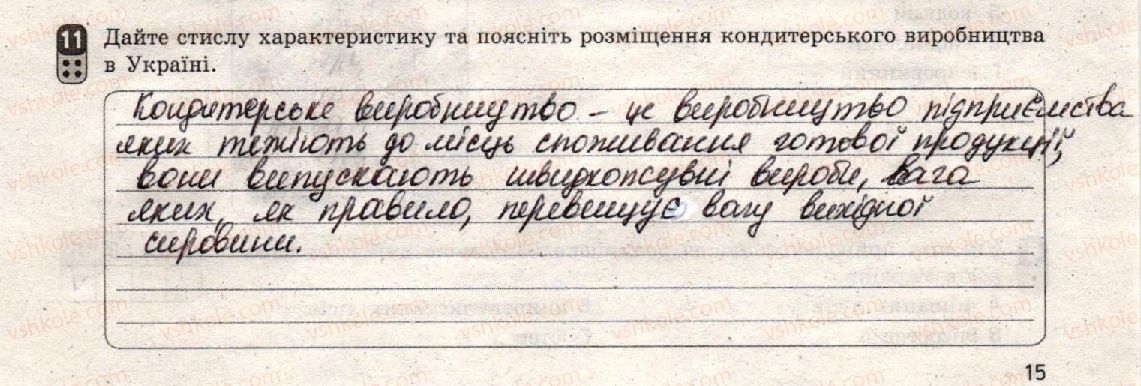 11 Дайте стислу характеристику та поясніть розміщення кондитерського виробництва
в Україні.
Кондитерське виробництво – це виробництво підприємства
яких тяжіють до місць споживання готової продукції,
вони випускають швидкопсувні вироби, вага
яких, як правило, перевищує вагу вихідної
сировини.
15